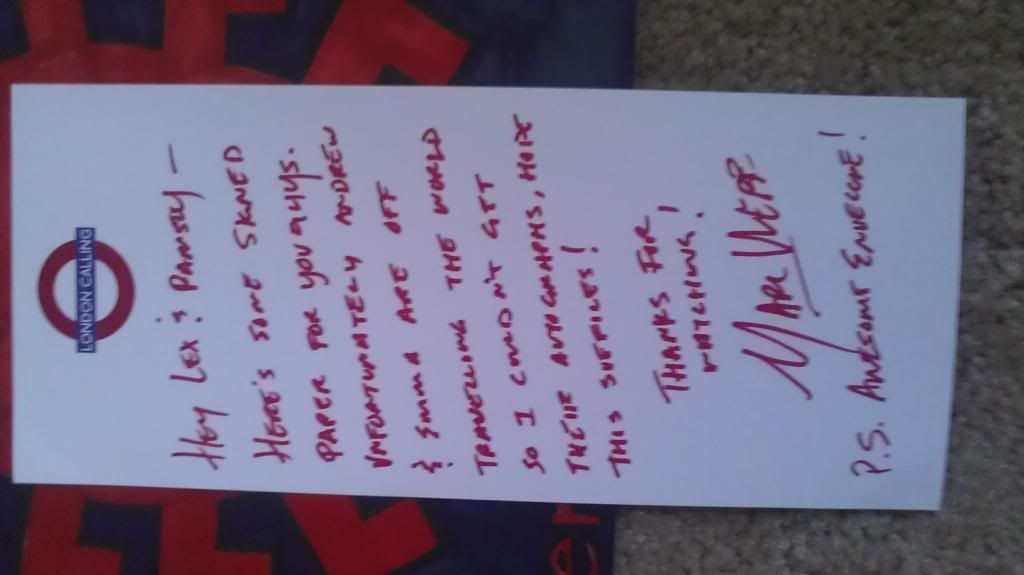 LONDON CALLING
HEY LEX & PANSTY —
HERE'S SOME SIGNED
PAPER FOR YOU GUYS.
UNFORTUNATELY ANDREW
& EMMA ARE OFF
TRAVELLING THE WORLD
SO I COULDN'T GET
THEIR AUTOGRAPHS, HOPE
THIS SUFFICES!
THANKS FOR
WATCHING!
MARC WEBB
P.S. AWESOME ENVELOPE!
er